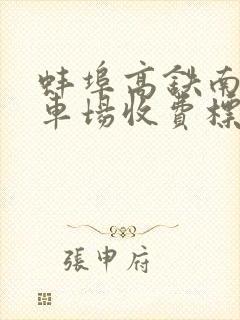 蚌埠高鉄南
車場收費標
張申府